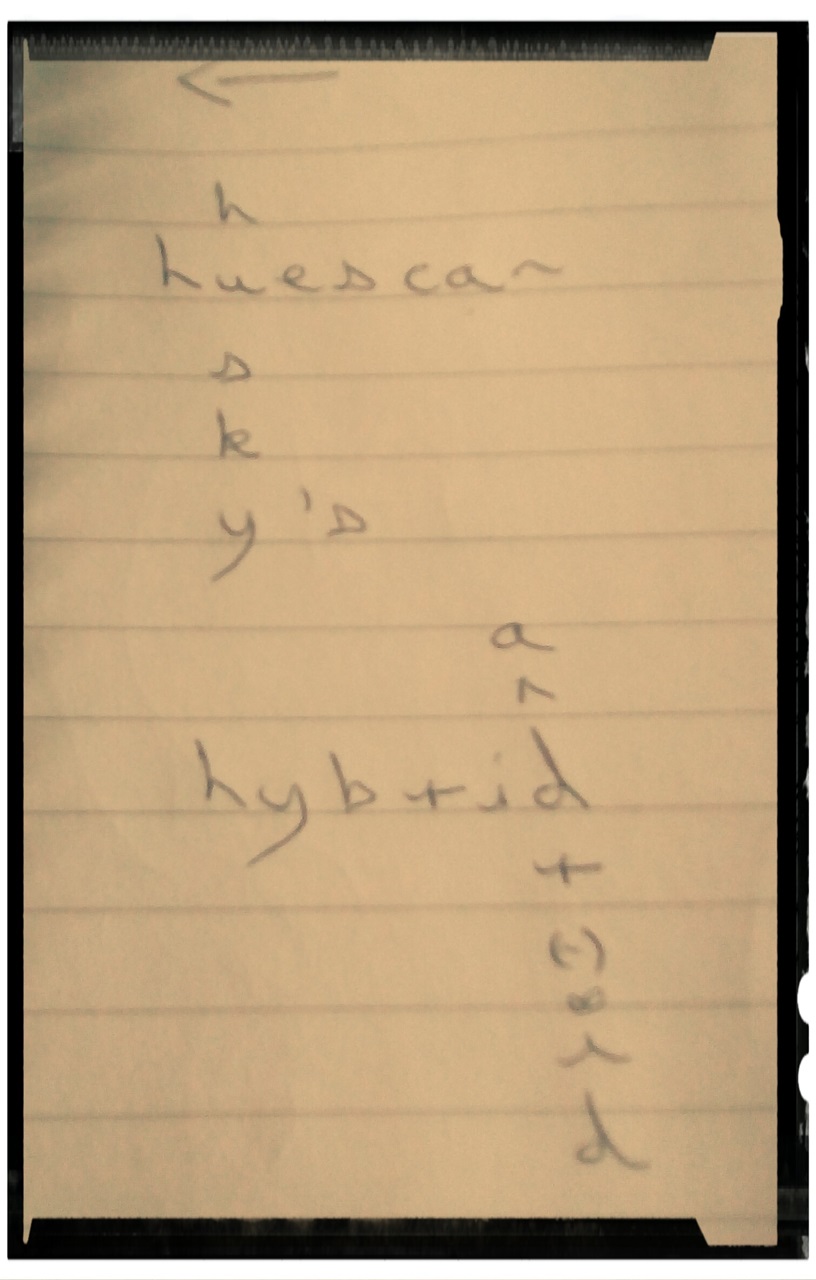 ←
h
huescan
s
k
y's
a
n
hybrid
t
e
r
d